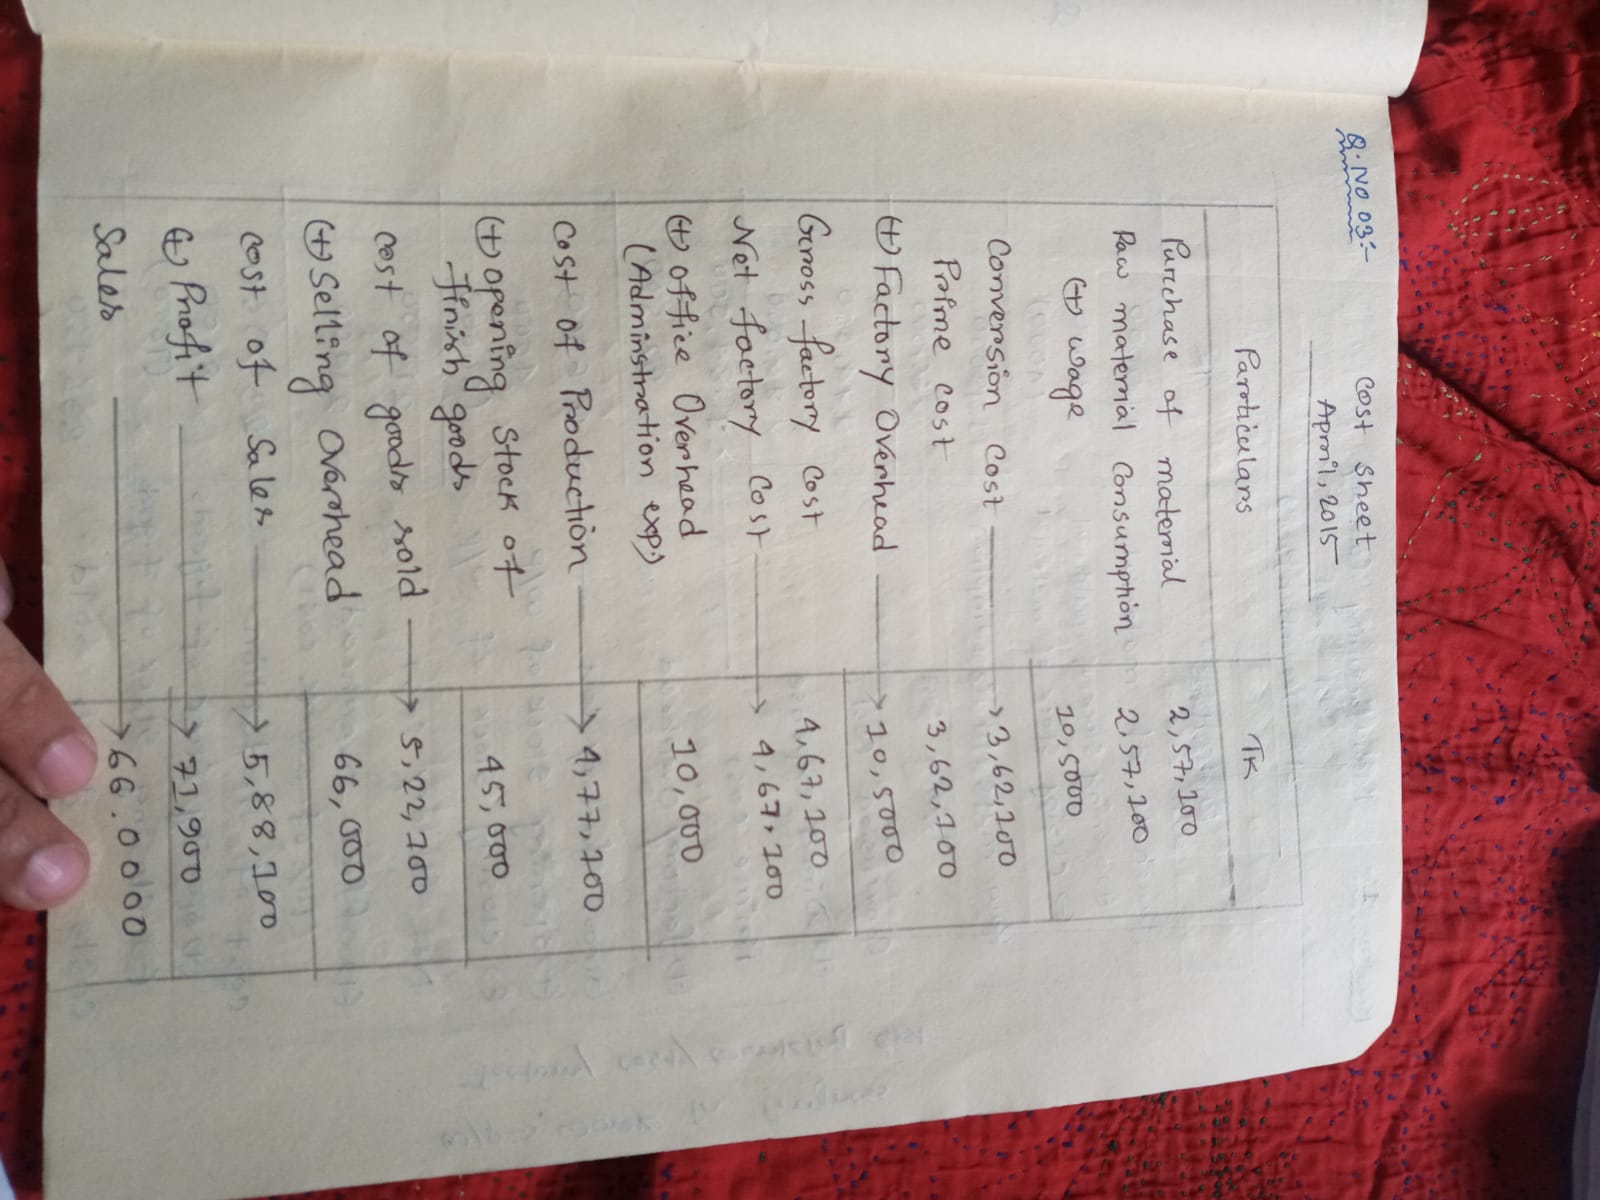 Q. NO 03:-
Cost Sheet
April, 2015
Particulars TK
Purchase of material 2,57,100
Raw material Consumption 2,57,100
(+) wage 10,5000
Conversion Cost → 3,62,100
Prime cost 3,62,100
(+) Factory Overhead → 10,5000
Gross factory Cost 4,67,100
Net factory Cost → 4,67,100
(+) office Overhead 10,000
(Adminstration exp:)
Cost of Production → 4,77,100
(+) opening Stock of 45,000
finish goods
cost of goods sold → 5,22,100
(+) Selling Overhead 66,000
cost of Sales → 5,88,100
(+) Profit → 71,900
Sales → 66.0000